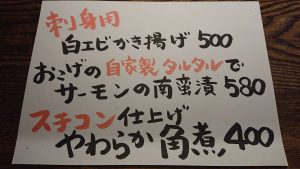 刺身用
白エビかき揚げ 500
おこげの自家製タルタルで
サーモンの南蛮漬 580
スチコン仕上げ
やわらか角煮, 400